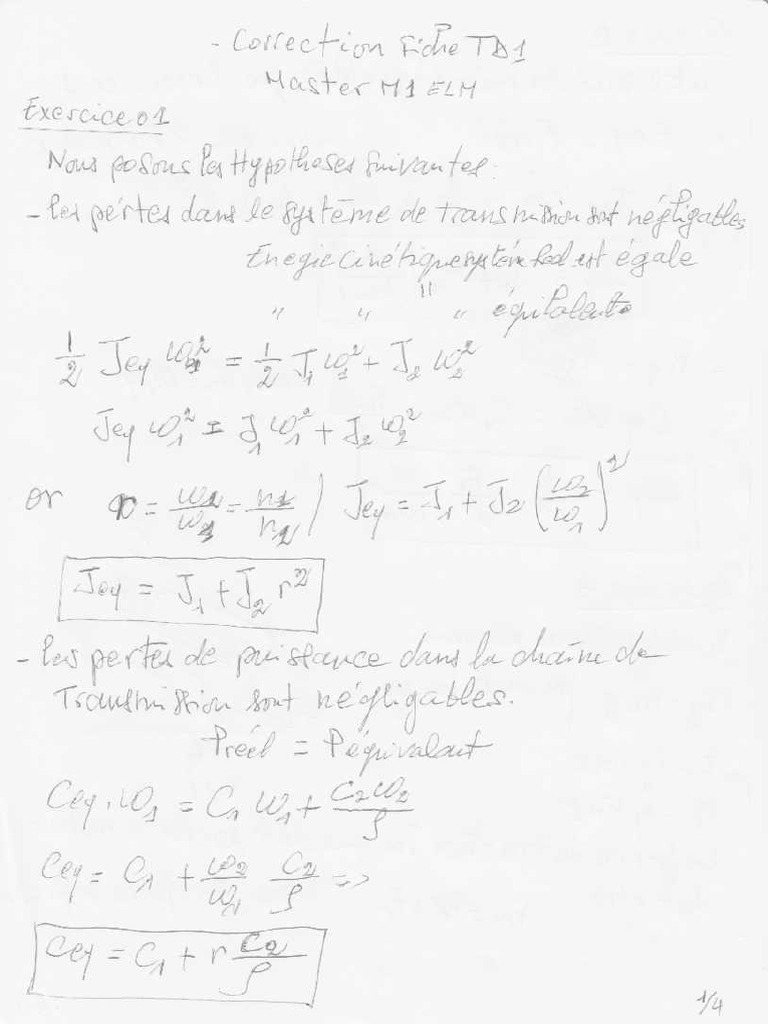 - Correction Fiche TD1
Master M1 ELM
Exercice 01
Nous posons les Hypotheses suivantes :
- les pértes dans le système de transmission sont négligables
Enegie cinétique système Réel est égale
" " " " équivalente
1/2 Jeq ω1² = 1/2 J1 ω1² + J2 ω2²
Jeq ω1² = J1 ω1² + J2 ω2²
or r = ω2/ω1 = n1/n2 / Jeq = J1 + J2 (ω2/ω1)²
Jeq = J1 + J2 r²
- les pertes de puissance dans la chaîne de
Transmission sont négligables.
Préel = Péquivalent
Ceq . ω1 = C1 ω1 + C2 ω2/ρ
Ceq = C1 + ω2/ω1 C2/ρ =>
Ceq = C1 + r C2/ρ
1/4